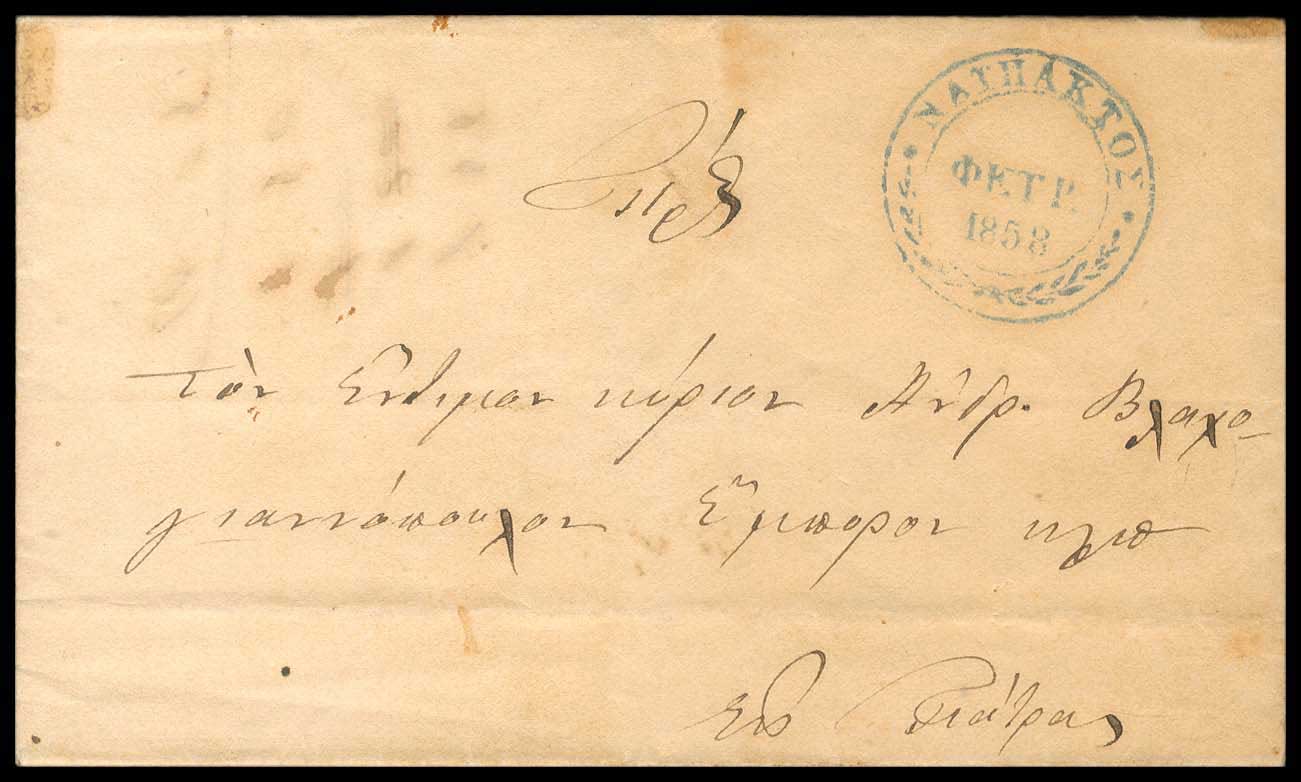 ΝΑΥΠΑΚΤΟΣ
ΦΕΥΡ.
1858
Πρὸς
Τὸν Ἔντιμον κύριον Ἀνδρ. Βλαχο-
γιαννόπουλον Ἔμπορον
εἰς Πάτρας